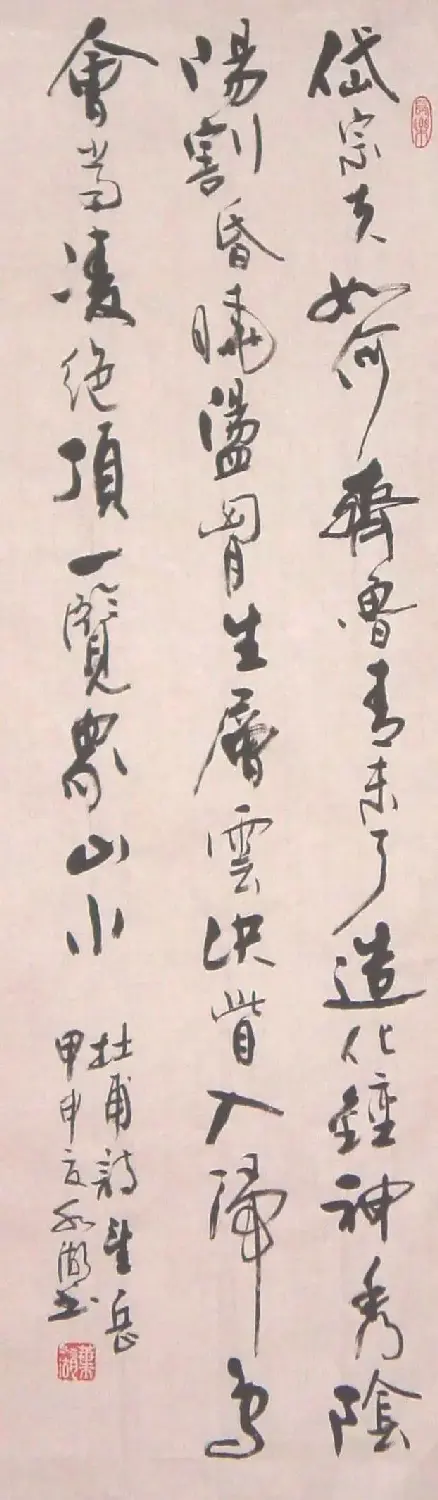 岱宗夫如何齊魯青未了造化鍾神秀陰
陽割昏曉盪胷生層雲決眥入歸鳥
會當凌絕頂一覽衆山小
杜甫詩望岳
甲申夏湖書